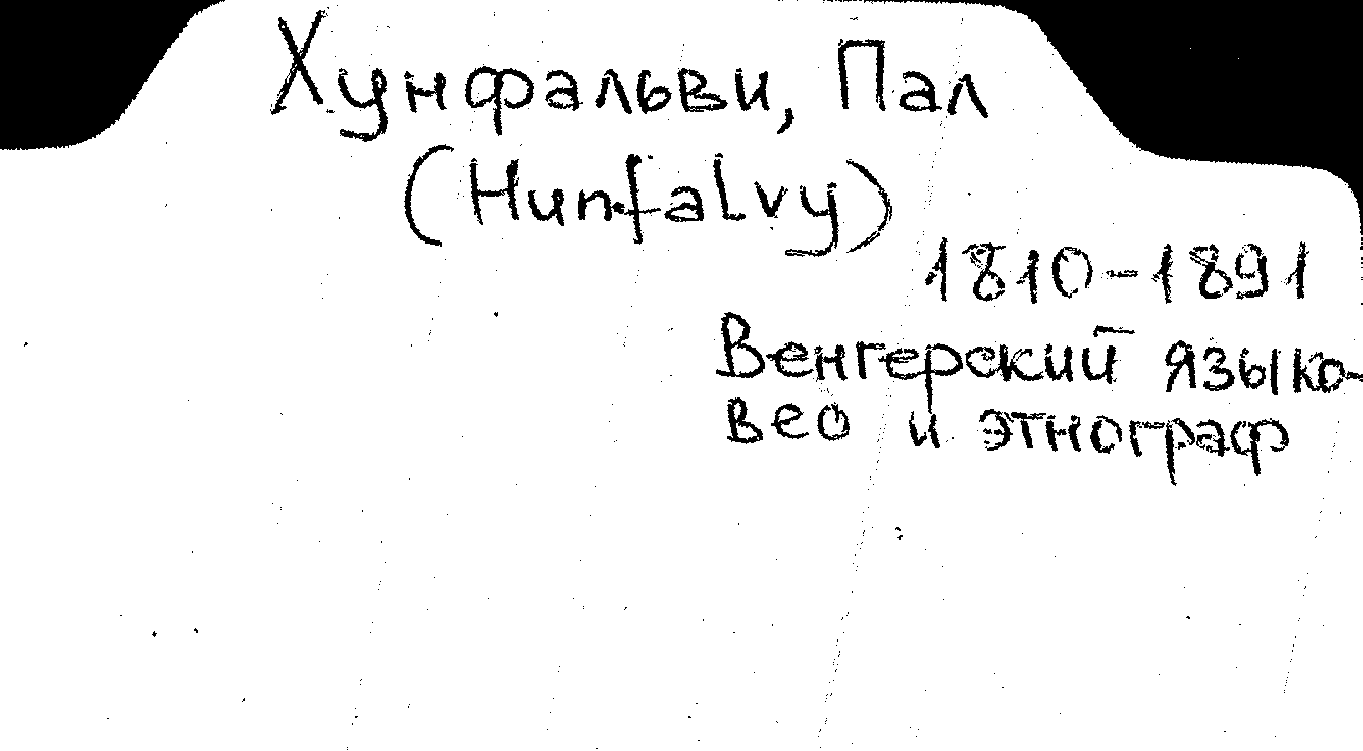 Хунфальви, Пал
(Hunfalvy)
1810-1891
Венгерский языко-
вед и этнограф